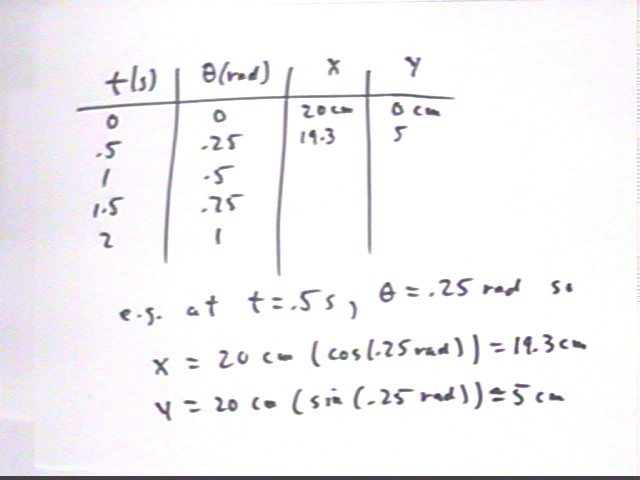 t(s) θ(rad) x y
0 0 20cm 0 cm
.5 .25 19.3 5
1 .5
1.5 .25
2 1
e.g. at t=.5s, θ=.25 rad so
x = 20 cm (cos(.25rad)) = 19.3cm
y = 20 cm (sin(.25 rad)) ≅ 5 cm